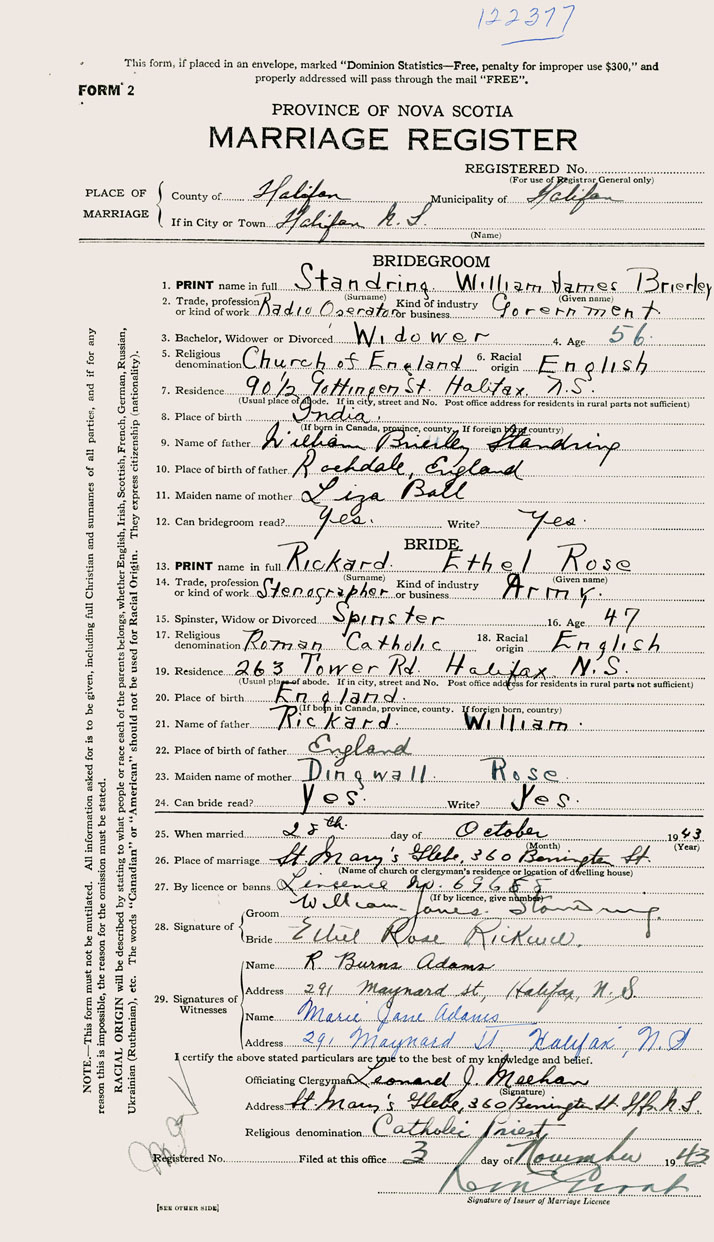 122377
This form, if placed in an envelope, marked "Dominion Statistics—Free, penalty for improper use $300," and
properly addressed will pass through the mail "FREE".
FORM 2
PROVINCE OF NOVA SCOTIA
MARRIAGE REGISTER
REGISTERED No.
(For use of Registrar General only)
PLACE OF MARRIAGE
County of Halifax Municipality of Halifax
If in City or Town Halifax N.S.
(Name)
BRIDEGROOM
1. PRINT name in full Standring William James Brierley
(Surname) (Given name)
2. Trade, profession or kind of work Radio Operator Kind of industry or business Government
3. Bachelor, Widower or Divorced Widower 4. Age 56
5. Religious denomination Church of England 6. Racial origin English
7. Residence 90½ Gottingen St. Halifax, N.S.
(Usual place of abode. If in city, street and No. Post office address for residents in rural parts not sufficient)
8. Place of birth India.
(If born in Canada, province, county. If foreign born, country)
9. Name of father William Brierley Standring
10. Place of birth of father Rochdale, England
11. Maiden name of mother Liza Ball
12. Can bridegroom read? Yes. Write? Yes.
BRIDE
13. PRINT name in full Rickard. Ethel Rose
(Surname) (Given name)
14. Trade, profession or kind of work Stenographer Kind of industry or business Army.
15. Spinster, Widow or Divorced Spinster 16. Age 47
17. Religious denomination Roman Catholic 18. Racial origin English
19. Residence 263 Tower Rd. Halifax N.S.
(Usual place of abode. If in city, street and No. Post office address for residents in rural parts not sufficient)
20. Place of birth England.
(If born in Canada, province, county. If foreign born, country)
21. Name of father Rickard. William.
22. Place of birth of father England
23. Maiden name of mother Dingwall Rose.
24. Can bride read? Yes. Write? Yes.
25. When married 28th. day of October 1943
(Month) (Year)
26. Place of marriage St. Mary's Glebe, 360 Barrington St.
(Name of church or clergyman's residence or location of dwelling house)
27. By licence or banns Lincence No. 69685
(If by licence, give number)
28. Signature of
Groom William James. Standring.
Bride Ethel Rose Rickard.
29. Signatures of Witnesses
Name R. Burns Adams
Address 291 Maynard st, Halifax, N.S.
Name Marie Jane Adams
Address 291 Maynard St. Halifax, N.S
I certify the above stated particulars are true to the best of my knowledge and belief.
Officiating Clergyman Leonard J. Meehan
(Signature)
Address St. Mary's Glebe, 360 Barrington St. Hfx. N.S.
Religious denomination Catholic Priest
Registered No. Filed at this office 3 day of November 1943
Signature of Issuer of Marriage Licence
[SEE OTHER SIDE]
NOTE.—This form must not be mutilated. All information asked for is to be given, including full Christian and surnames of all parties, and if for any
reason this is impossible, the reason for the omission must be stated.
RACIAL ORIGIN will be described by stating to what people or race each of the parents belongs, whether English, Irish, Scottish, French, German, Russian,
Ukrainian (Ruthenian), etc. The words "Canadian" or "American" should not be used for Racial Origin. They express citizenship (nationality).